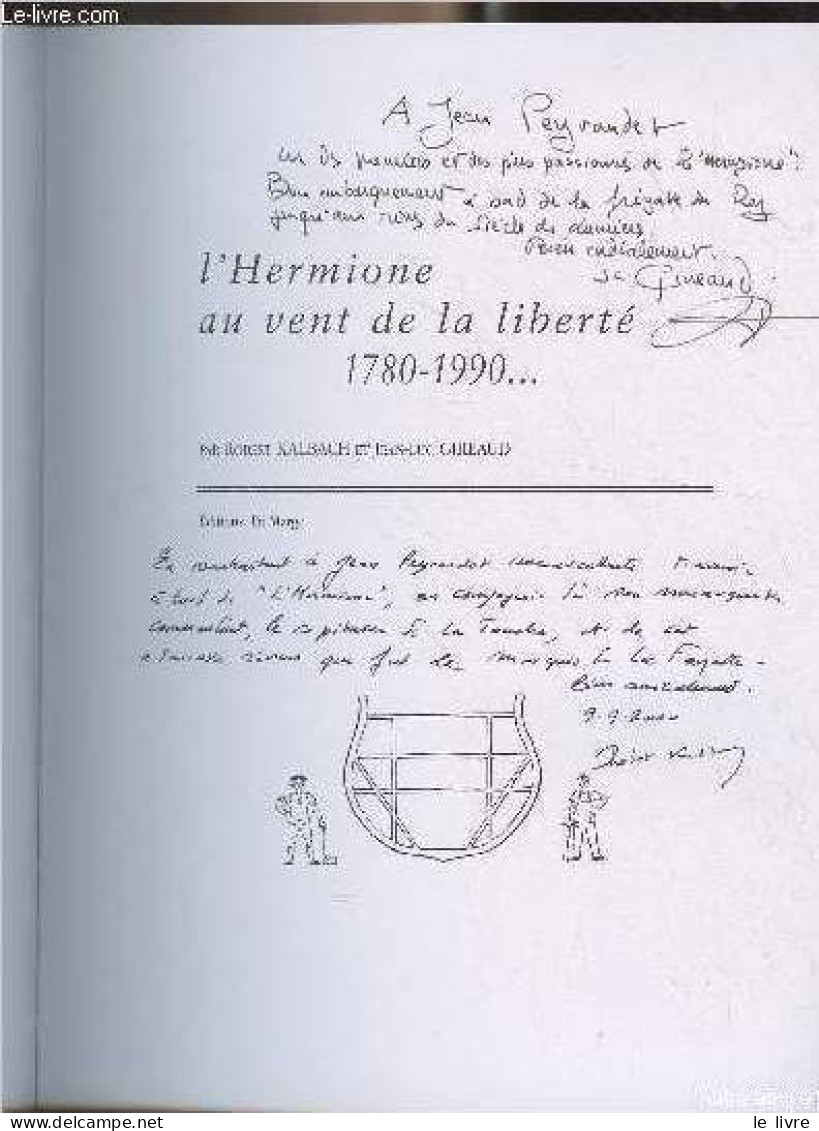 Le-livre.com
A Jean Peyraudet
un des premiers et des plus passionnés de l'"Hermione".
Bon embarquement à bord de la frégate du Roy
jusqu'aux rives du siècle des lumières.
cordialement.
l'Hermione
au vent de la liberté
1780-1990...
PAR ROBERT KALBACH ET JEAN-LUC GIREAUD
En souhaitant à Jean Peyraudet
à bord de "L'Hermione", en compagnie de son
commandant, le capitaine de La Touche, et de cet
que fut le marquis de La Fayette -
Bien amicalement.
le-livre.com
le livre